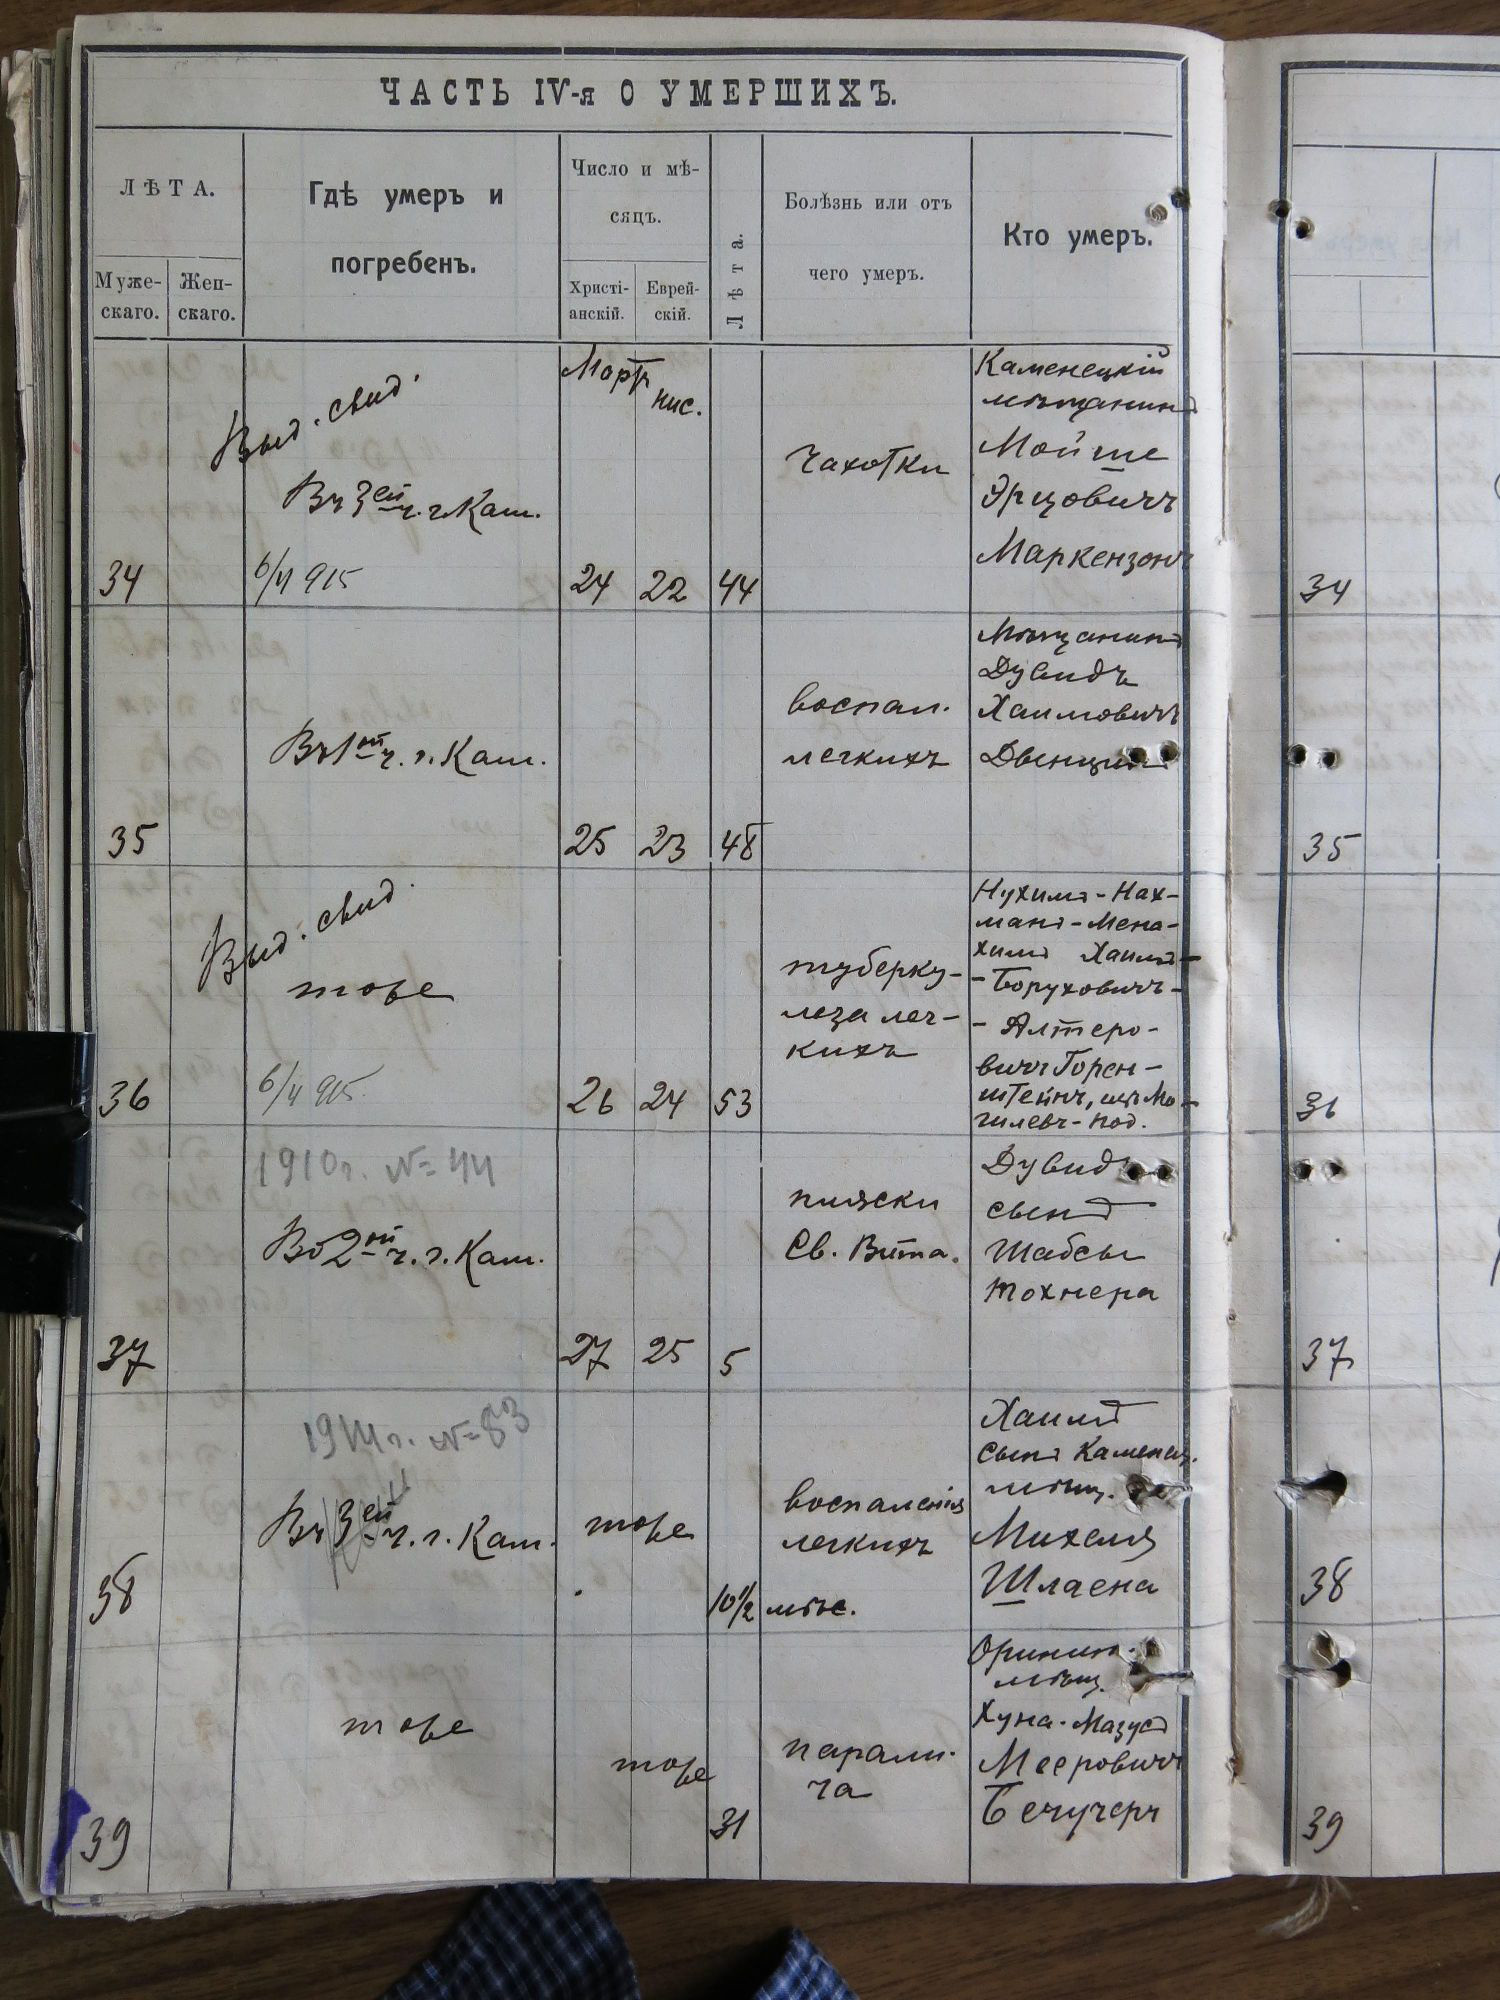 ЧАСТЬ IV-я О УМЕРШИХЪ.
ЛѢТА.
Муже-
скаго.
Жен-
скаго.
Гдѣ умеръ и
погребенъ.
Число и мѣ-
сяцъ.
Христі-
анскій.
Еврей-
скій.
Лѣта.
Болѣзнь или отъ
чего умеръ.
Кто умеръ.
34
Выд. свид.
Въ 3ей ч. г. Кам.
6/VI 915
Мартъ
24
нис.
22
44
Чахотки
Каменецкій
мѣщанинъ
Мойше
Эрцовичъ
Маркензонъ
34
35
Въ 1ой ч. г. Кам.
25
23
48
воспал.
легкихъ
Мѣщанинъ
Дувидъ
Хаимовичъ
35
36
Выд. свид.
тоже
26
24
53
туберку-
леза лег-
кихъ
Нухимъ-Нах-
манъ-Мена-
химъ Хаимъ-
-Боруховичъ-
-Алтеро-
вичъ Горен-
штейнъ, мѣ Мо-
гилевъ-Под.
36
37
1910г. №44
Въ 2ой ч. г. Кам.
27
25
5
пляски
Св. Вита.
Дувидъ
сынъ
Шабсы
Тохнера
37
38
№83
Въ 3ей ч. г. Кам.
тоже
10 1/2 мѣс.
воспаленія
легкихъ
Хаимъ
сынъ Каменец.
мѣщ.
Михеля
Шлаена
38
39
тоже
тоже
31
парали-
ча
Оринин.
мѣщ.
Хуна-Мазусъ
Мееровичъ
Бечучеръ
39